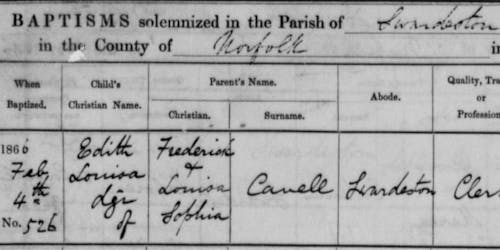 BAPTISMS solemnized in the Parish of Swardeston
in the County of Norfolk
When Baptized.
Child's Christian Name.
Parent's Name.
Christian.
Surname.
Abode.
Quality, Tra
or
Profession
1866
Feb
4th
No. 526
Edith
Louisa
dgr
of
Frederick
&
Louisa
Sophia
Cavell
Swardeston
Cler